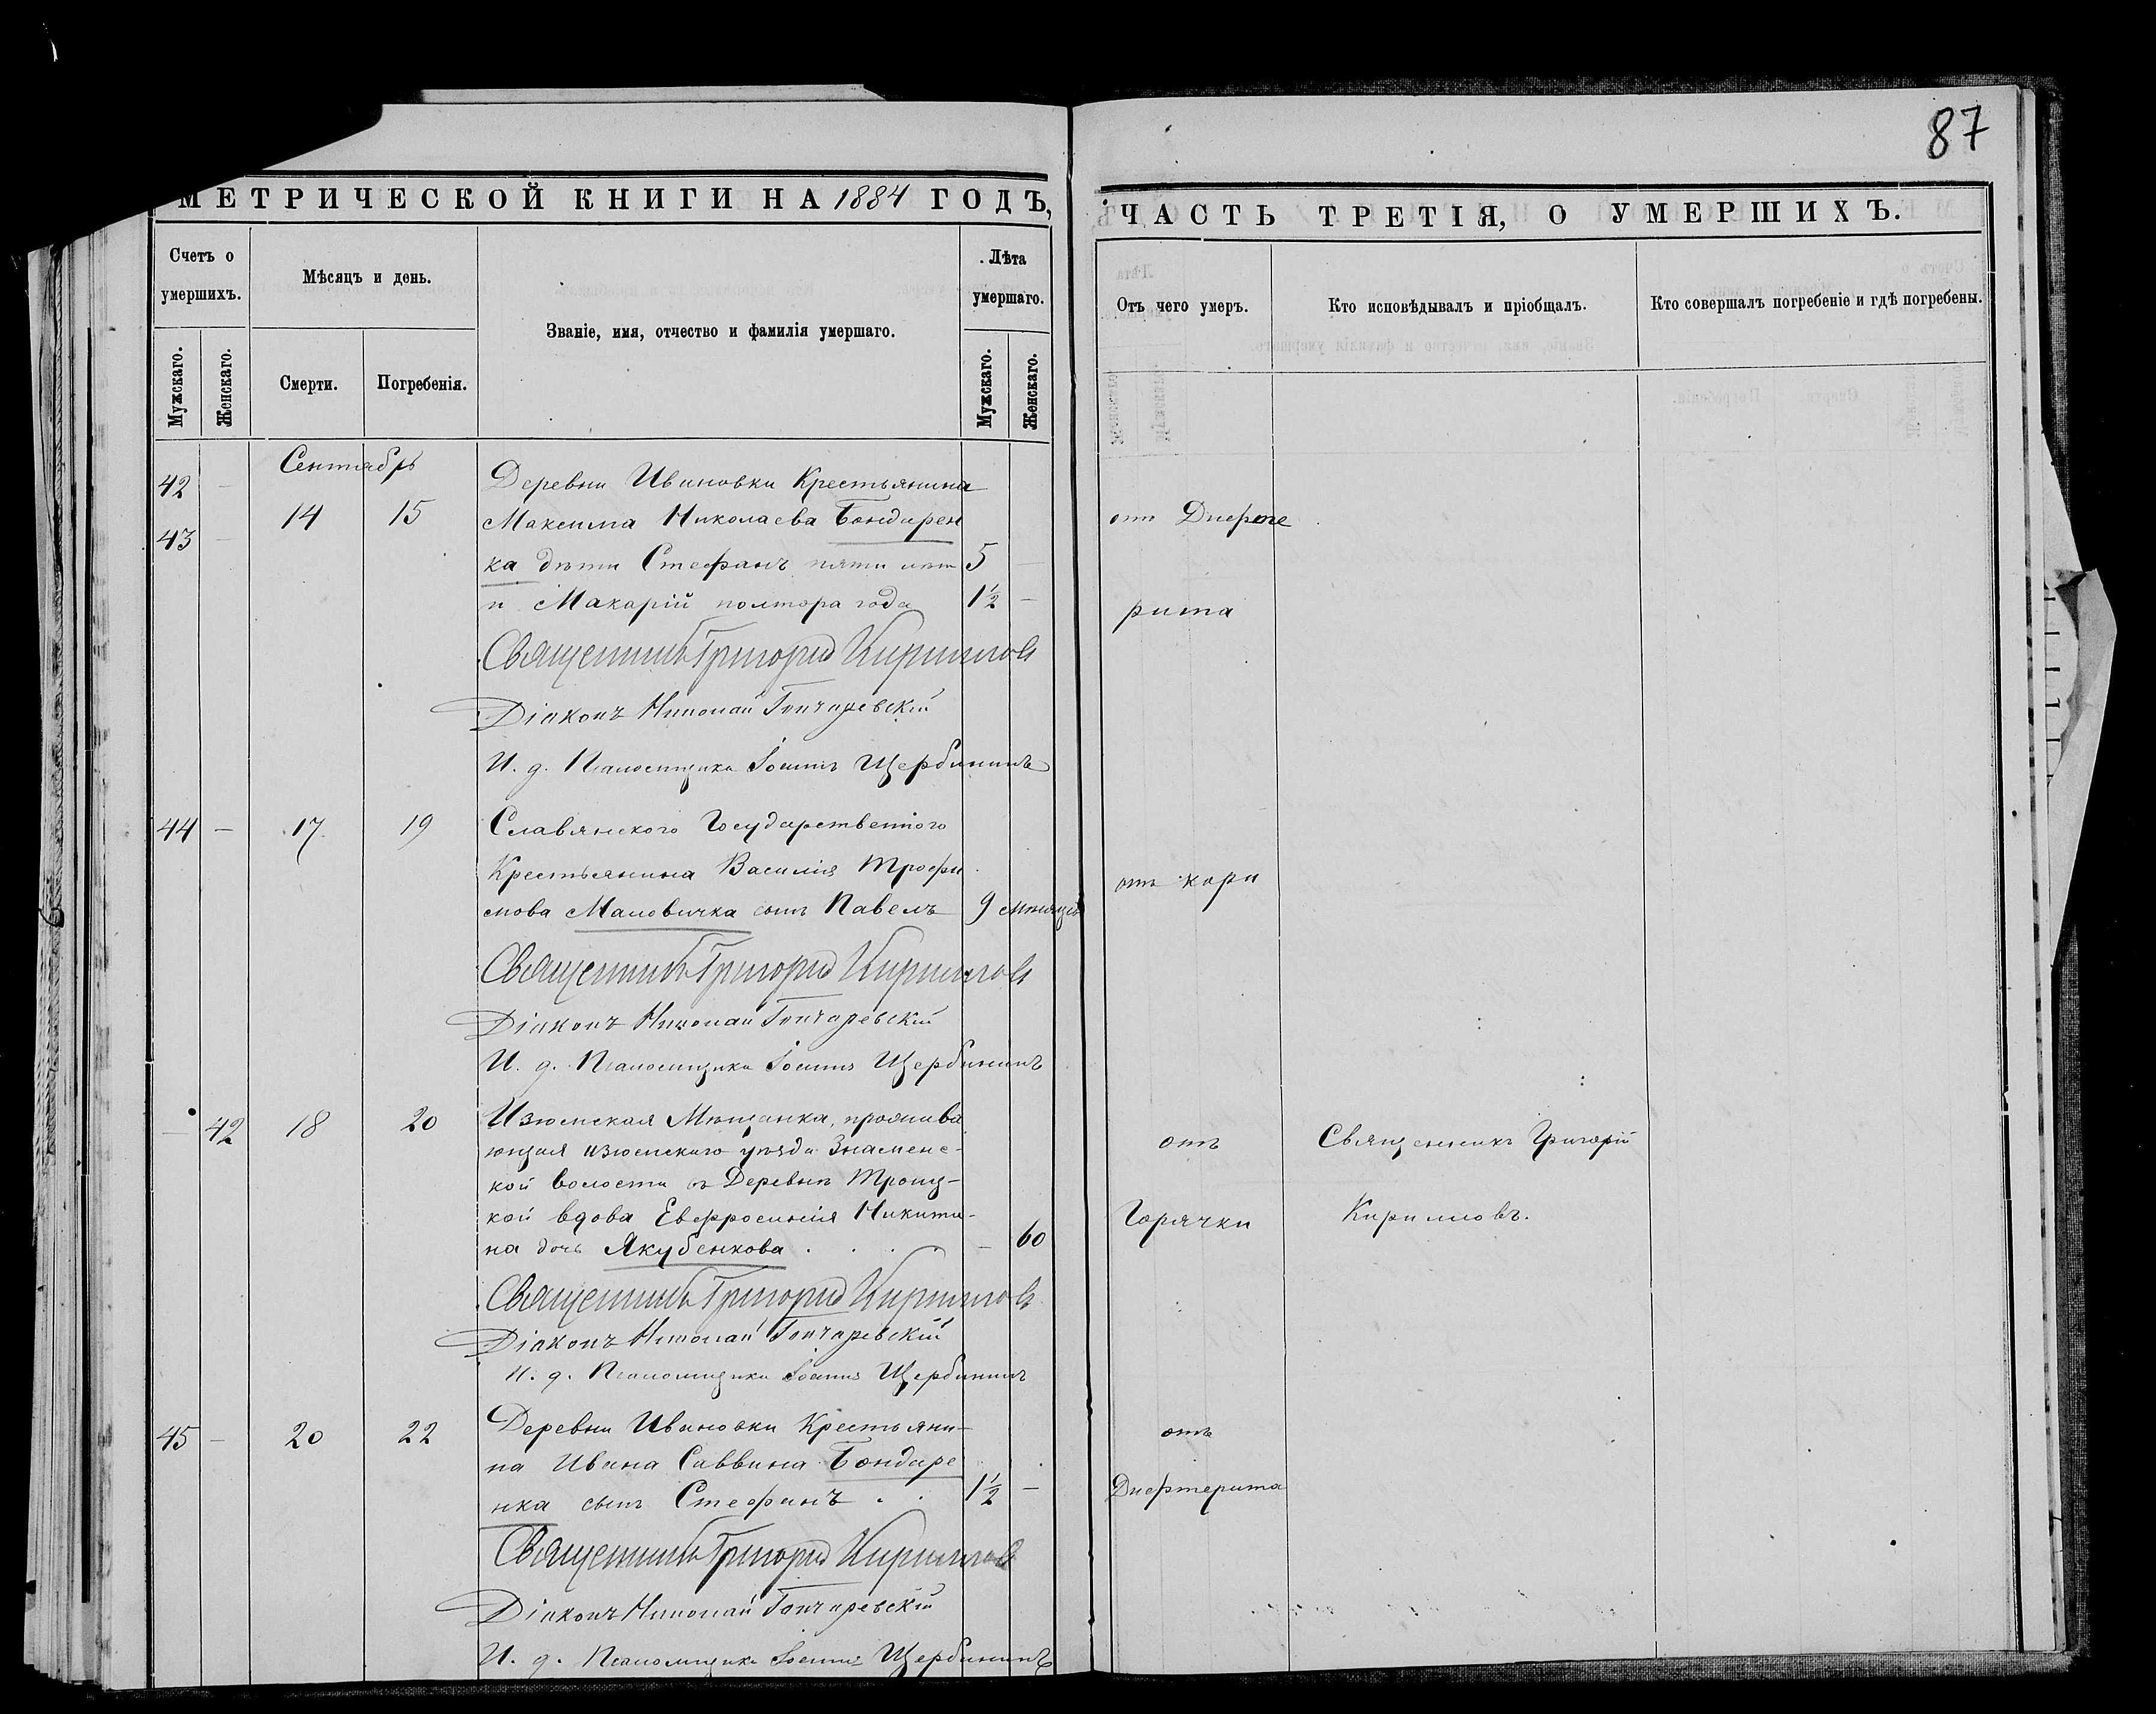 87
МЕТРИЧЕСКОЙ КНИГИ НА 1884 ГОДЪ,
ЧАСТЬ ТРЕТІЯ, О УМЕРШИХЪ.
Счетъ о умершихъ.
Мѣсяцъ и день.
Званіе, имя, отчество и фамилія умершаго.
Лѣта умершаго.
Отъ чего умеръ.
Кто исповѣдывалъ и пріобщалъ.
Кто совершалъ погребеніе и гдѣ погребены.
Мужскаго.
Женскаго.
Смерти.
Погребенія.
Мужскаго.
Женскаго.
Сентябрь
42 - Деревни Ивановки Крестьянина
43 - 14 15 Максима Николаева Бондарен отъ Дифте
ка дѣти Стефанъ пяти лѣт 5 -
и Макарій полтора года 1½ - рита
Священникъ Григорій Кирилловъ
Діаконъ Николай Гончаревскій
И. д. Псаломщика Іоаннъ Щербининъ
44 - 17 19 Славянского Государственного
Крестьянина Василія Трофи отъ кори
мова Маловичка сынъ Павелъ 9 мѣсяцев
Священникъ Григорій Кирилловъ
Діаконъ Николай Гончаревскій
И. д. Псаломщика Іоаннъ Щербининъ
- 42 18 20 Изюмская Мѣщанка, прожива отъ Священникъ Григорій
ющая изюмскаго уѣзда Знаменс-
кой волости въ Деревнѣ Троиц-
кой вдова Евфросинія Никити- Горячки Кирилловъ.
на дочь Якубенкова . . . . - 60
Священникъ Григорій Кирилловъ
Діаконъ Николай Гончаревскій
И. д. Псаломщика Іоаннъ Щербининъ
45 - 20 22 Деревни Ивановки Крестьяни- отъ
на Ивана Саввина Бондаре
нка сынъ Стефанъ . . 1½ - Дифтерита
Священникъ Григорій Кирилловъ
Діаконъ Николай Гончаревскій
И. д. Псаломщика Іоаннъ Щербининъ